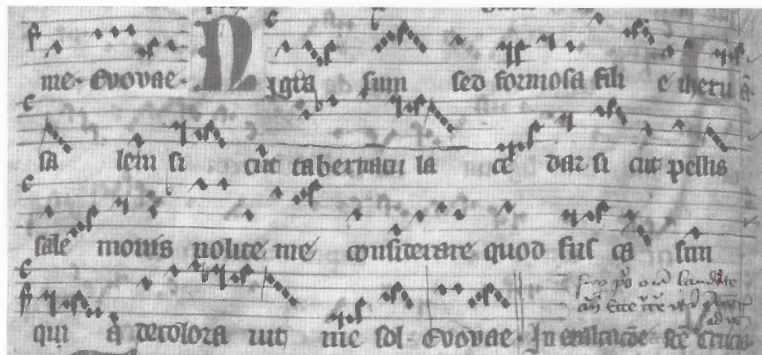 me. Evovae. Nigra sum sed formosa fili e iheru
sa lem si cut tabernacu la ce dar si cut pellis
sale monis nolite me considerare quod fus ca sum
qui a decolora vit me sol. Evovae. In exaltacõe scẽ crucis